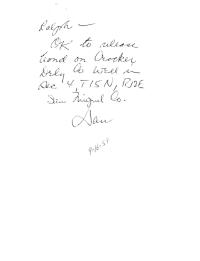 Ralph —
OK to release
bond on Crocker
Drlg Co well in
Sec 4, T15N, R12E
San Miguel Co.
Dan